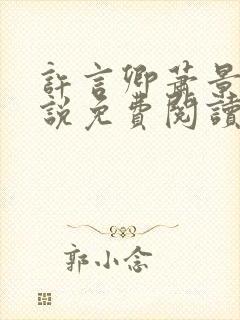 許言卿蕭景
說免費閱讀
郭小念